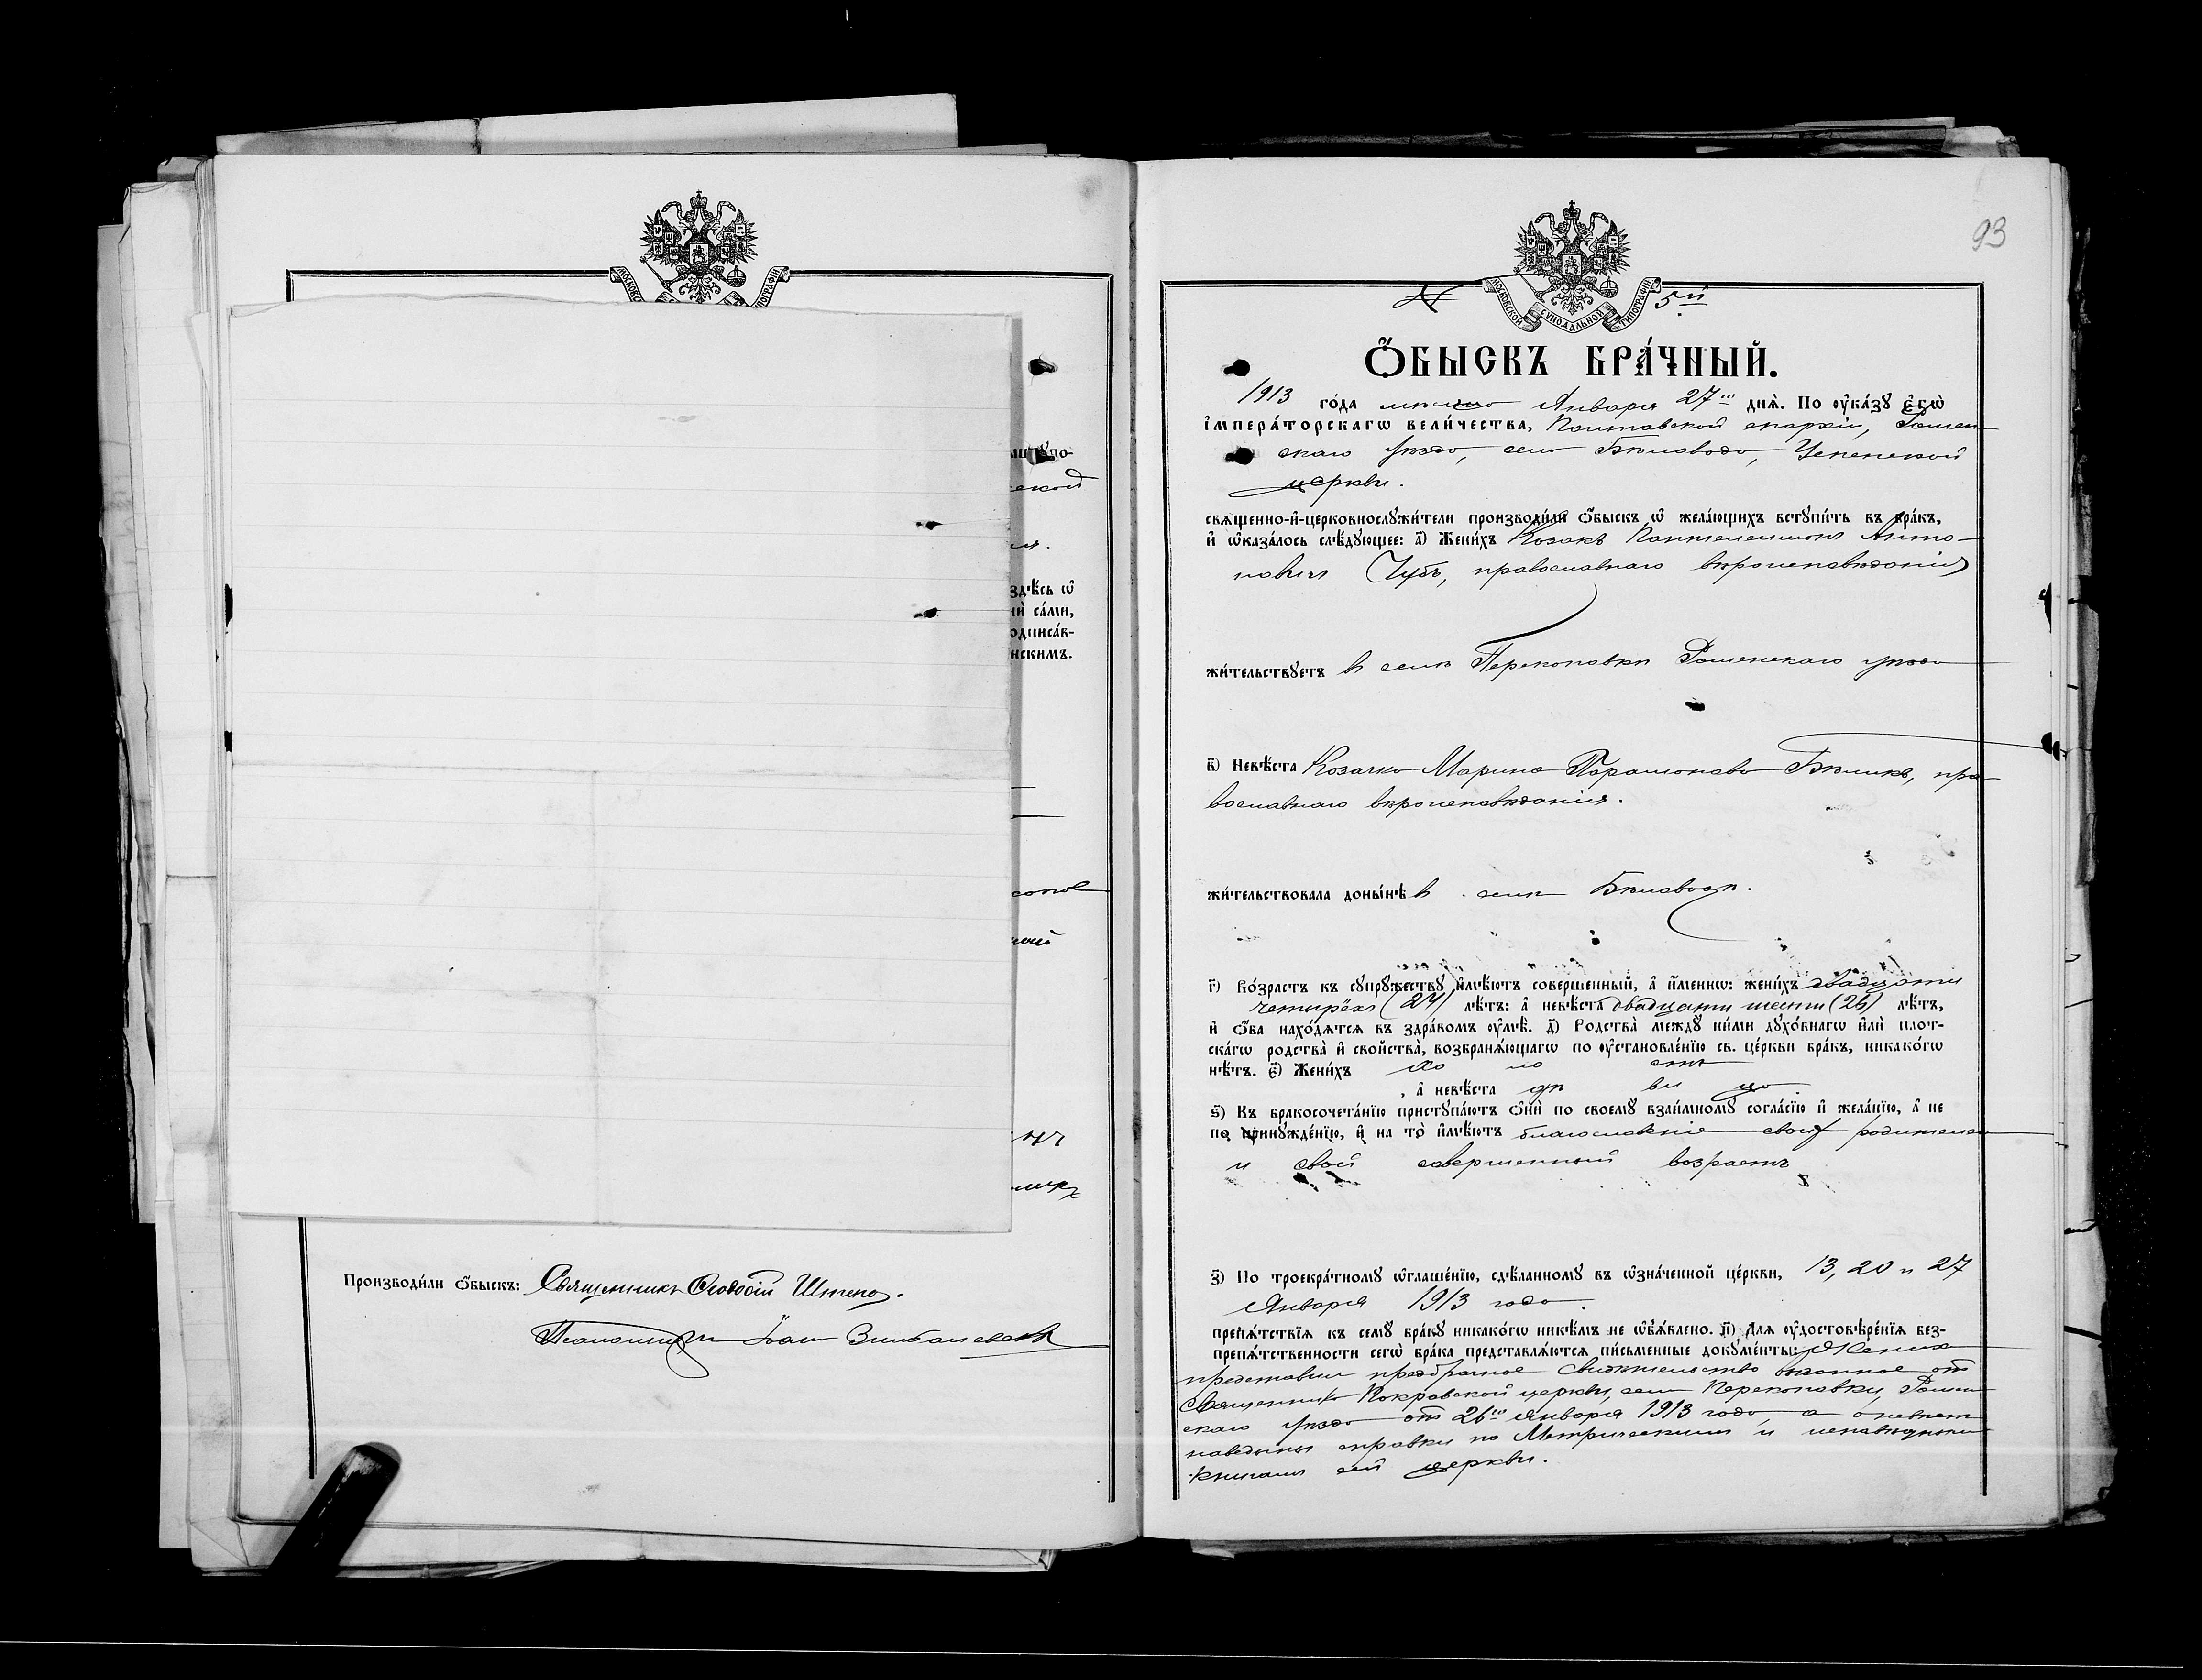 МОСКОВСКОЙ
ТИПОГРАФІИ
ской
здѣсь ѡ҆
ни̂ са́ми,
одписа́в-
нскимъ.
Производи́ли ѻ҆́быскъ: Священникъ Ѳеодосій Штепа.
Псаломщикъ Іоан
93
№ 5й
МОСКОВСКОЙ СѴНОДАЛЬНОЙ ТИПОГРАФІИ
Ѻ҆́БЫСКЪ БРА́ЧНЫЙ.
1913 го́да мѣсяца Января 27го дня̀. По ᲂу҆ка́зу є҆гѡ̀
і҆мпера́торскагѡ вели́чества, Полтавской епархіи, Ромен-
скаго уѣзда, села Бѣловода, Успенской
церкви.
свѧще́нно-и҆-церковнослужи́тели производи́ли ѻ҆́быскъ ѡ҆ жела́ющихъ вступи́ть въ бра́къ,
и҆ ѡ҆каза́лось слѣ́дующее: а҃) Жени́хъ Козакъ Пантелеимонъ Анто-
новичъ Чубъ, православнаго вѣроисповѣданія
жи́тельствуетъ в селѣ Перекоповки Роменскаго уѣзда
в҃) Невѣ́ста Козачка Марина Парамонова Бѣликъ, пра-
вославнаго вѣроисповѣданія.
жи́тельствовала доны́нѣ в селѣ Бѣловодѣ.
г҃) Во́зрастъ къ супру́жеству и҆мѣ́ютъ соверше́нный, а҆ и҆́менно: жени́хъ двадцати
четырёхъ (24) лѣ́тъ: а҆ невѣ́ста двадцати шести (26) лѣ́тъ,
и҆ ѻ҆́ба нахо́дятся въ здра́вомъ ᲂу҆мѣ̀. д҃) Родства̀ между ни́ми духо́внагѡ и҆лѝ плот-
ска́гѡ родства̀ и҆ свойства̀, возбраня́ющагѡ по ᲂу҆становле́нїю св. це́ркви бра́къ, никако́гѡ
нѣ́тъ. є҃) Жени́хъ хо ло стъ
, а҆ невѣ́ста дѣ ви ца.
ѕ҃) Къ бракосочета́нїю приступа́ютъ ѻ҆нѝ по своему̀ взаи́мному согла́сїю и҆ жела́нїю, а҆ не
по принужде́нїю, и҆ на то̀ и҆мѣ́ютъ благословеніе своихъ родителей
и свой совершенный возрастъ
з҃) По троекра́тному ѡ҆глаше́нїю, сдѣ́ланному въ ѡ҆зна́ченной це́ркви, 13, 20 и 27
Января 1913 года.
препя́тствїя къ сему̀ бра́ку никако́гѡ никѣ́мъ не ѡ҆б̾я́влено. и҃) Для ᲂу҆достовѣре́нїя без-
препя́тственности сегѡ̀ бра́ка представля́ются пи́сьменные докуме́нты: Женихъ
представилъ предбрачное свидѣтельство отъ
Священника Покровской церкви, села Перекоповки, Ромен-
скаго уѣзда отъ 26го января 1913 года, а о невѣстѣ
наведены справки по Метрическимъ и исповѣднымъ
книгамъ сей церкви.